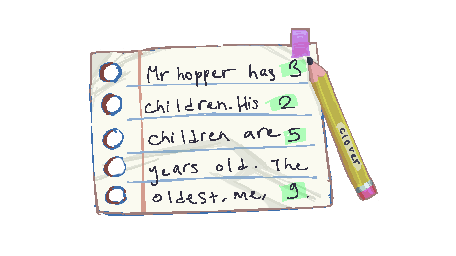 Mr hopper has 3
children. His 2
children are 5
years old. The
oldest, me, 9.
clover